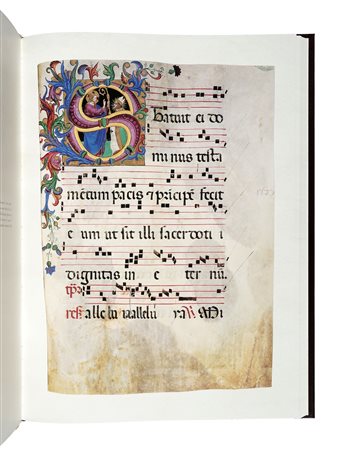 Statuit ei do
minus testa
mentum pacis ⁊ pricipē fecit
eum ut sit illi sacerdoti i
dignitas in e ter nū.
tp̄r
alle lu